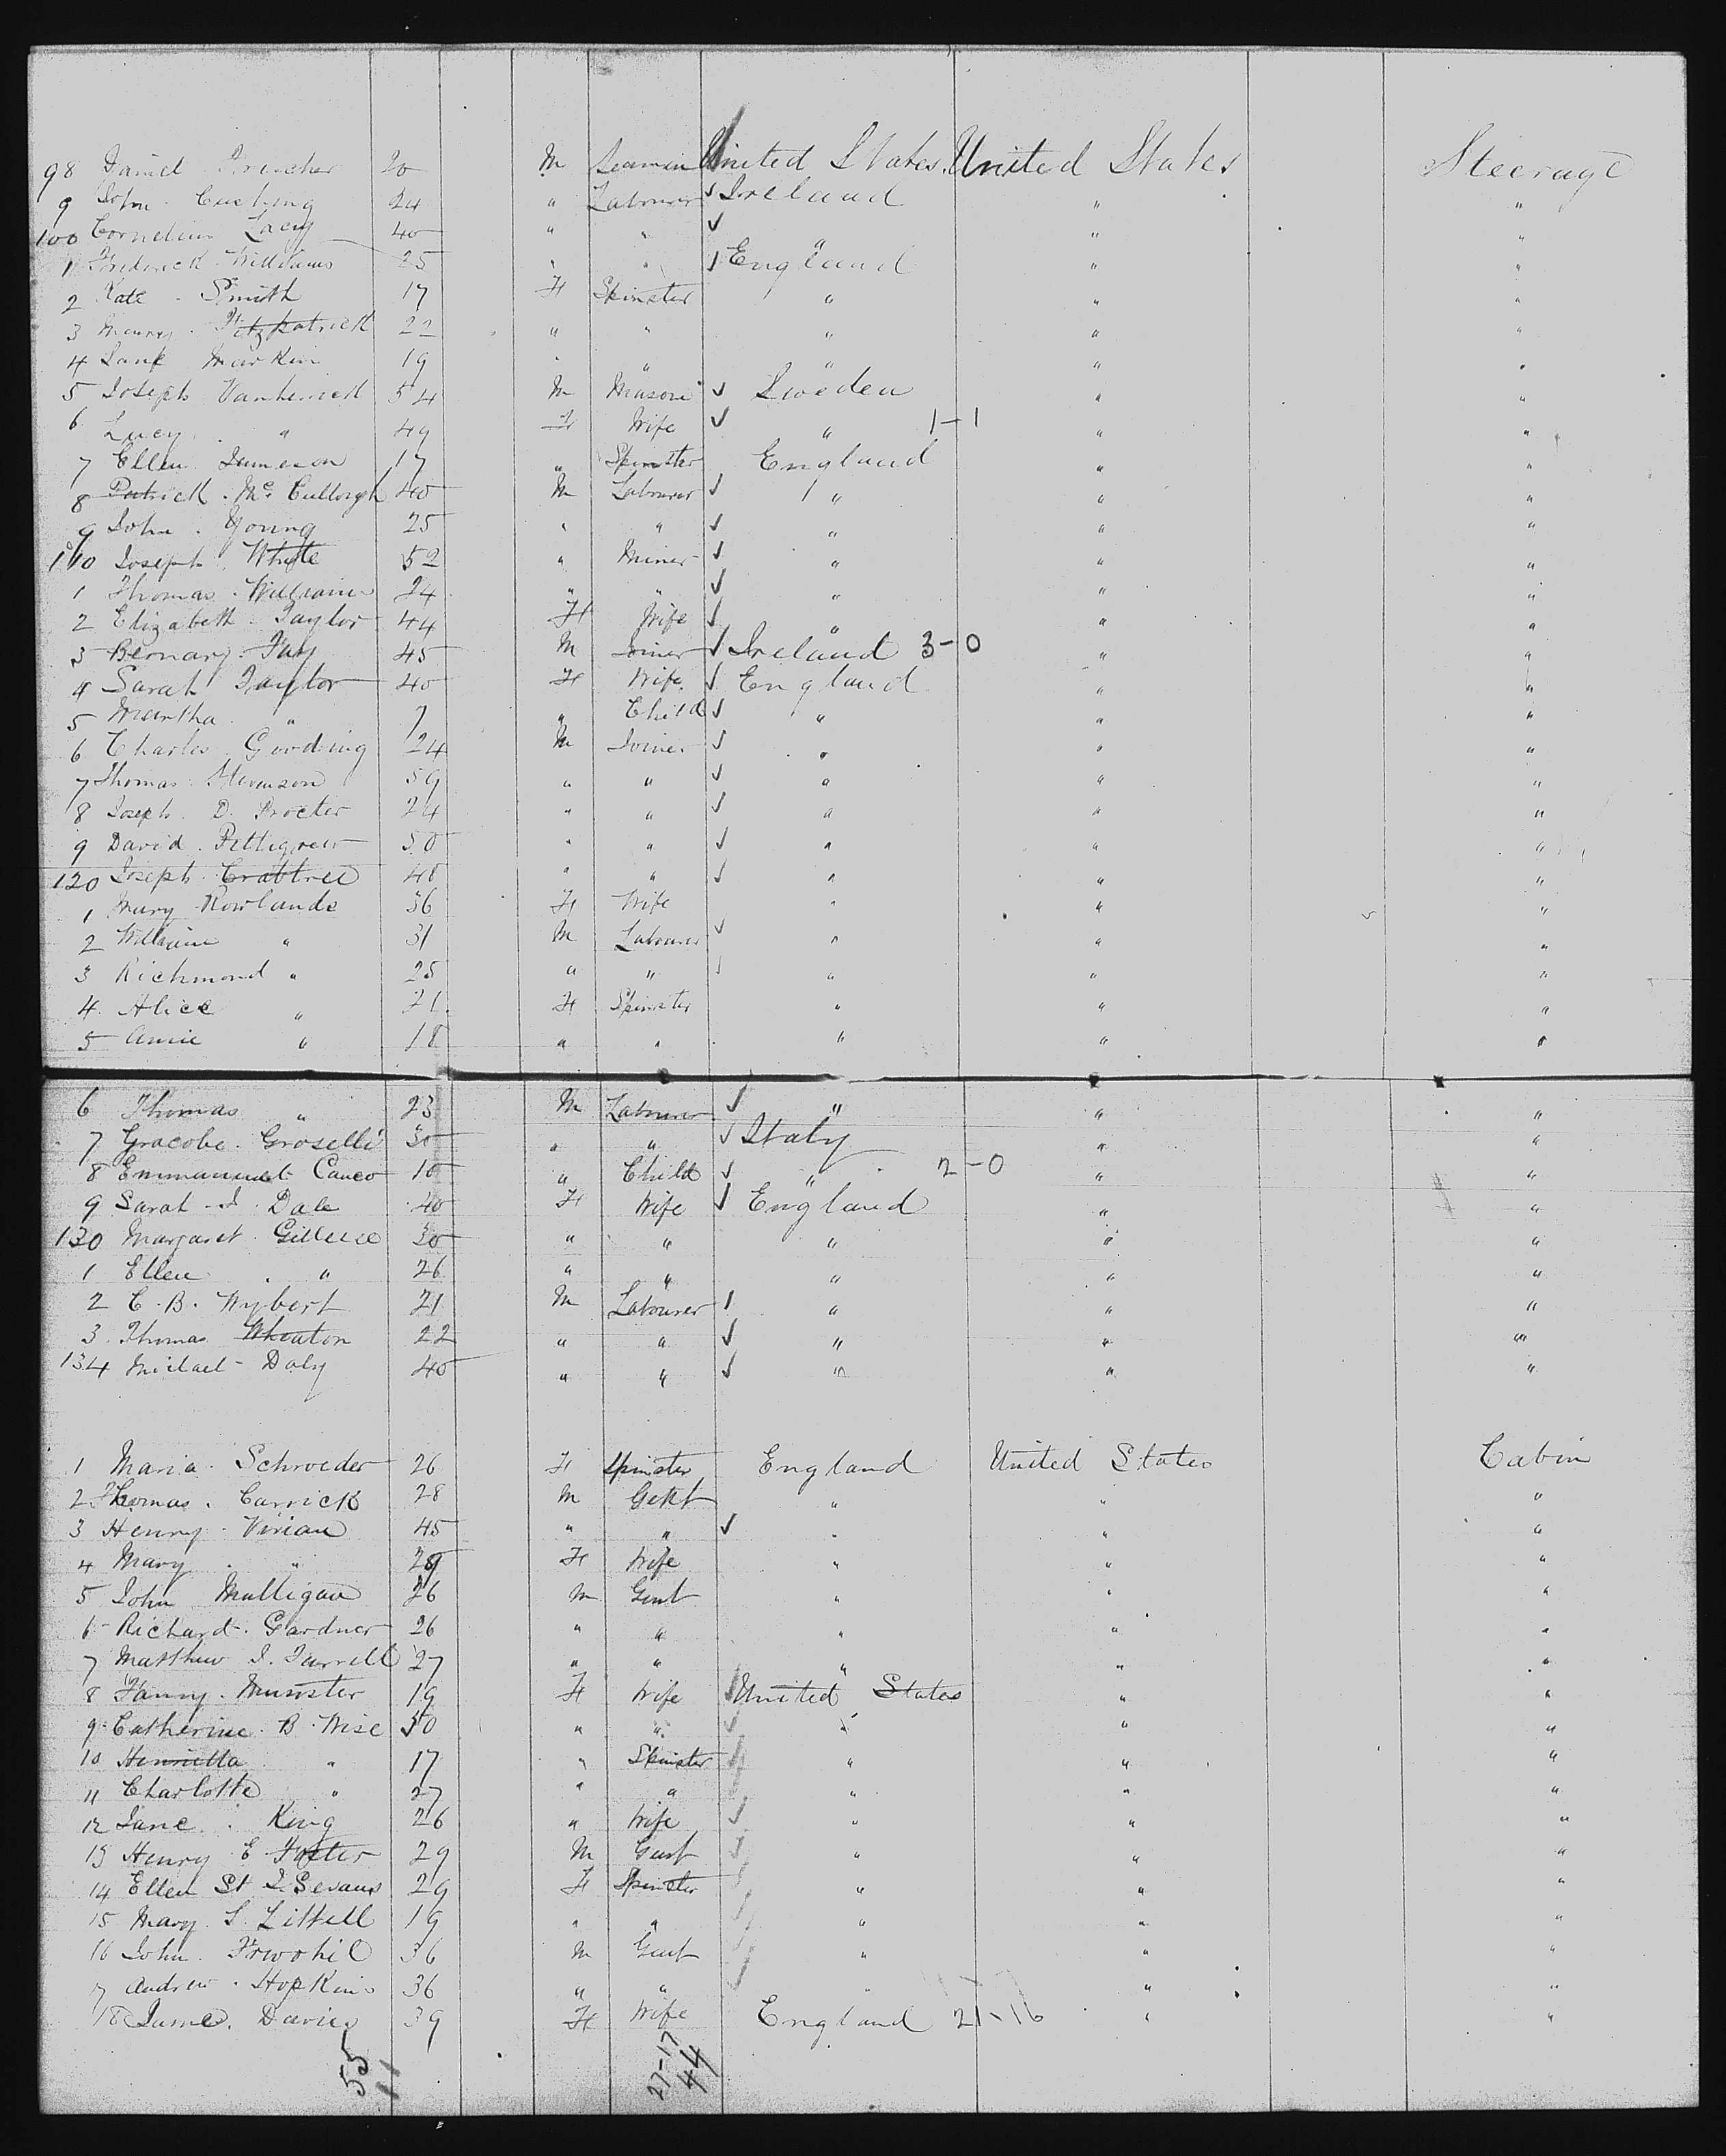 98 Daniel Frencher 20 M Seaman United States United States Steerage
9 John Cushing 24 " Labourer Ireland " "
100 Cornelius Lacy 40 " " " " "
1 Frederick Williams 25 " " England " "
2 Kate Smith 17 F Spinster " " "
3 Fitzpatrick 22 " " " " "
4 Jane Markin 19 " " " " "
5 Joseph 54 M Mason Sweden " "
6 Lucy " 49 F Wife " 1-1 " "
7 Ellen Jameson 17 " Spinster England " "
8 Patrick McCullough 40 M Labourer " " "
9 John Young 25 " " " " "
110 Joseph White 52 " Miner " " "
1 Thomas William 24 " " " " "
2 Elizabeth Taylor 44 F Wife " " "
3 Bernary Fay 45 M Joiner Ireland 3-0 " "
4 Sarah Taylor 40 F Wife England " "
5 Martha " 7 " Child " " "
6 Charles Gooding 24 M Joiner " " "
7 Thomas Stevenson 59 " " " " "
8 Joseph D. Procter 24 " " " " "
9 David Pettigrew 50 " " " " "
120 Joseph Crabtree 48 " " " " "
1 Mary Rowlands 56 F Wife " " "
2 William " 31 M Labourer " " "
3 Richmond " 25 " " " " "
4 Alice " 21 F Spinster " " "
5 Annie " 18 " " " " "
6 Thomas " 23 M Labourer " " "
7 Gracobe Groselli 30 " " Italy " "
8 Emmanuel Caneo 10 " Child " 2-0 " "
9 Sarah J. Dale 40 F Wife England " "
130 Margaret Gillese 30 " " " " "
1 Ellen " 26 " " " " "
2 C. B. Wybert 21 M Labourer " " "
3 Thomas Wheaton 22 " " " " "
134 Michael Daly 40 " " " " "
1 Maria Schroeder 26 F Spinster England United States Cabin
2 Thomas Carrick 28 M Gent " " "
3 Henry Vivian 45 " " " " "
4 Mary " 29 F Wife " " "
5 John Mulligan 26 M Gent " " "
6 Richard Gardner 26 " " " " "
7 Matthew J. Farrell 27 " " " " "
8 Fanny Munster 19 F Wife United States " "
9 Catherine B. Wise 50 " " " " "
10 Henrietta " 17 " Spinster " " "
11 Charlotte " 27 " " " " "
12 Jane King 26 " Wife " " "
13 Henry E Foster 29 M Gent " " "
14 Ellen St 29 F Spinster " " "
15 Mary S. Littell 19 " " " " "
16 John 36 M Gent " " "
17 Andrew Hopkins 36 " " " " "
18 Davies 39 F Wife England 21-16 " "
55 27-17
11 44